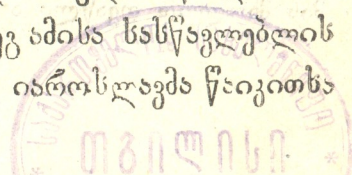 ამისა სასწავლებლის
იაროსლავმა წაიკითხა
თბილისი